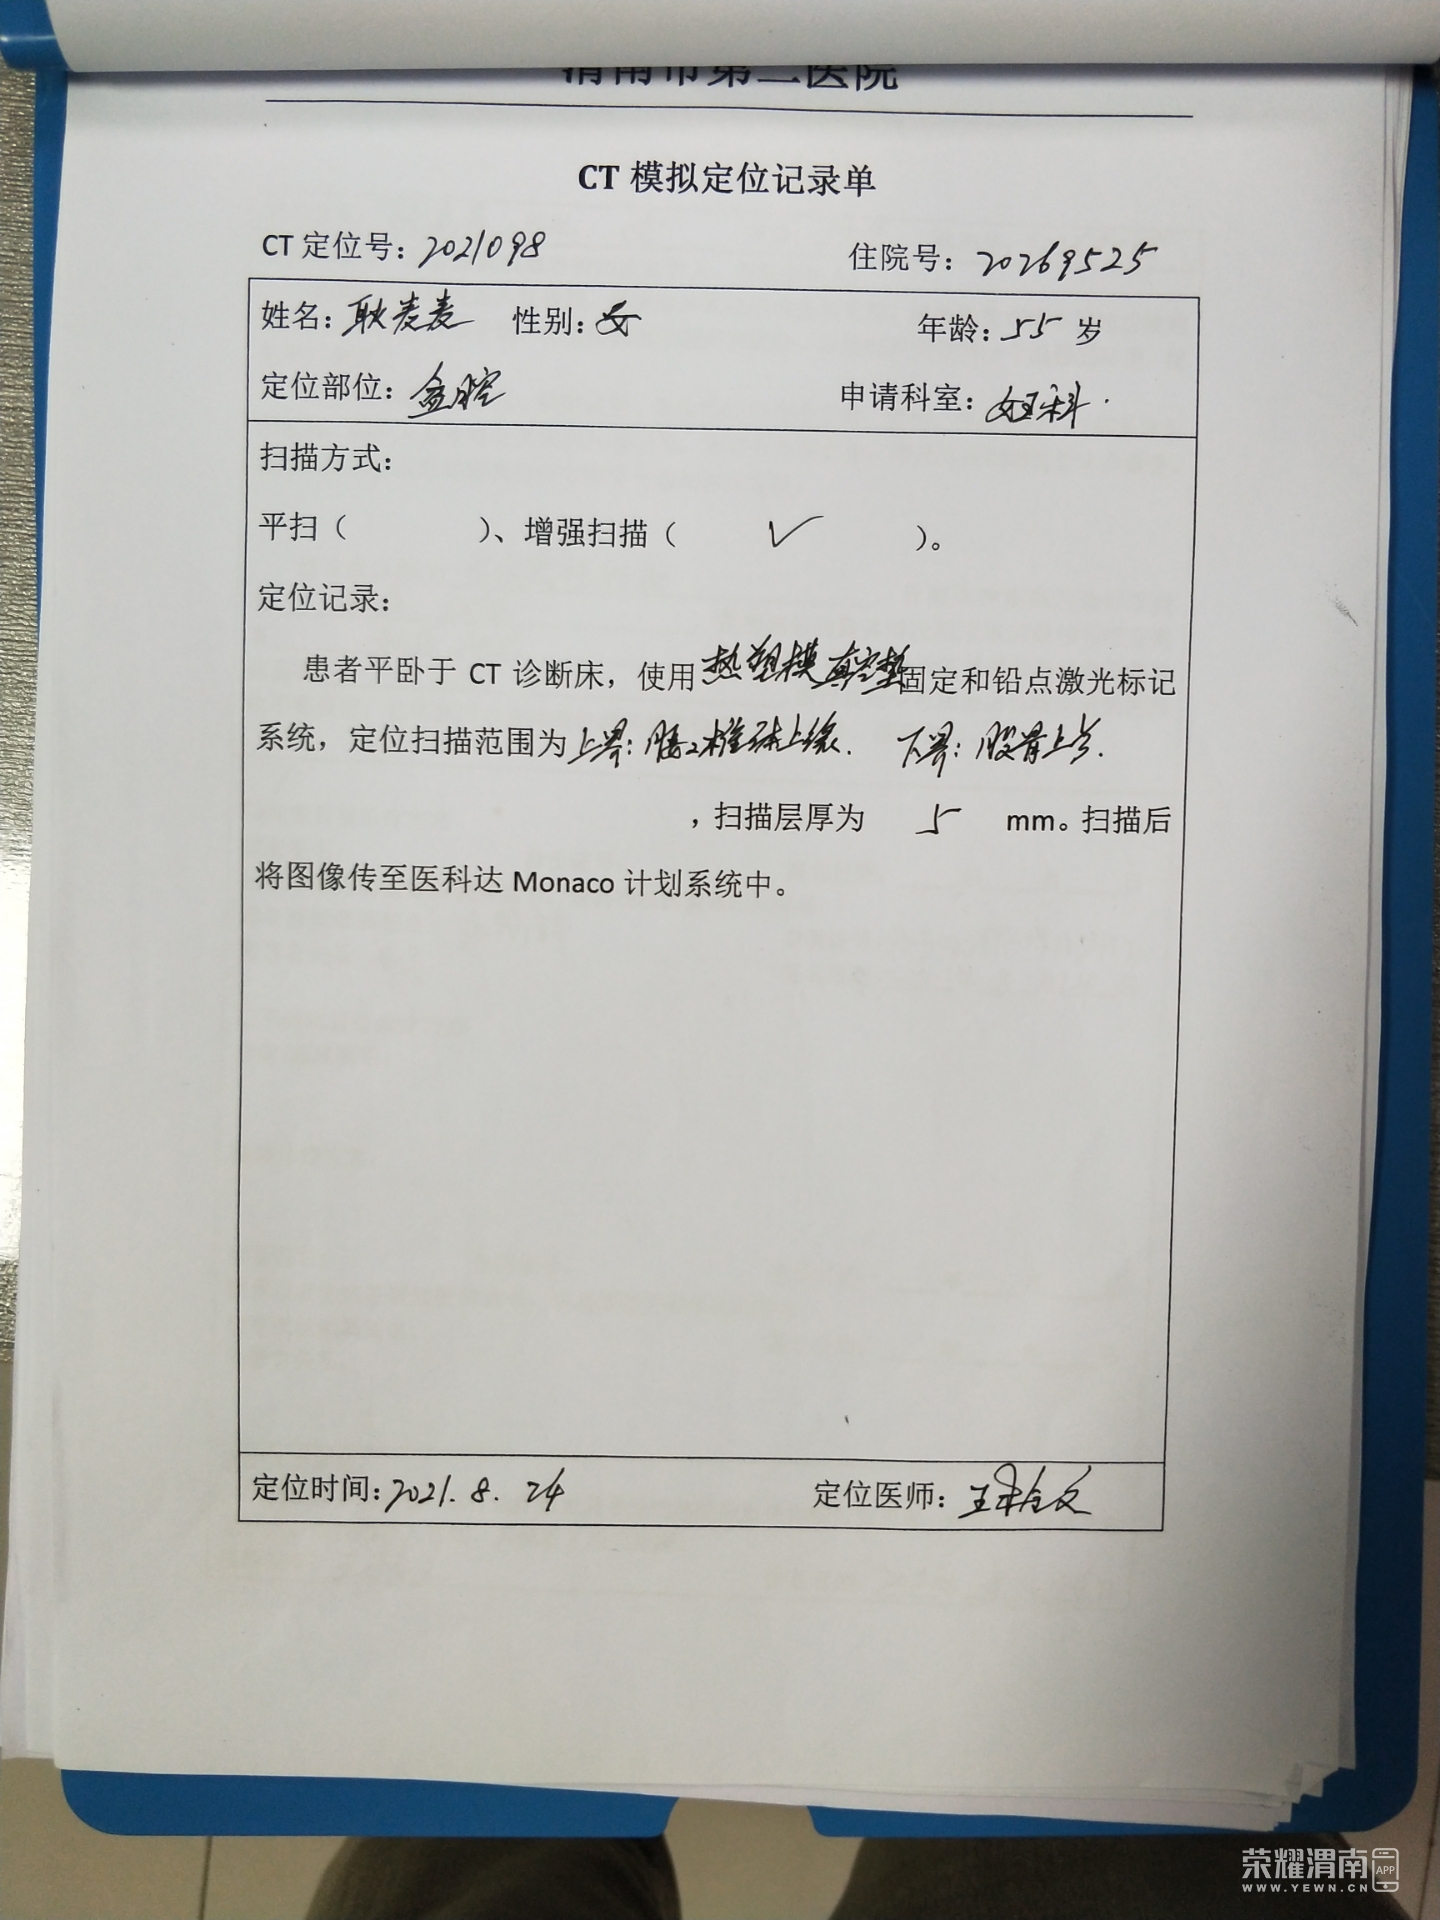 渭南市第二医院
CT 模拟定位记录单
CT 定位号：2021098 住院号：20269525
姓名：耿麦麦 性别：女 年龄：55 岁
定位部位：盆腔 申请科室：妇科.
扫描方式：
平扫（ ）、增强扫描（ ✓ ）。
定位记录：
患者平卧于 CT 诊断床，使用热塑模真空垫固定和铅点激光标记
系统，定位扫描范围为上界：腰2椎体上缘. 下界：股骨上
，扫描层厚为 5 mm。扫描后
将图像传至医科达 Monaco 计划系统中。
定位时间：2021.8.24 定位医师：王
荣耀渭南 APP
WWW.YEWN.CN